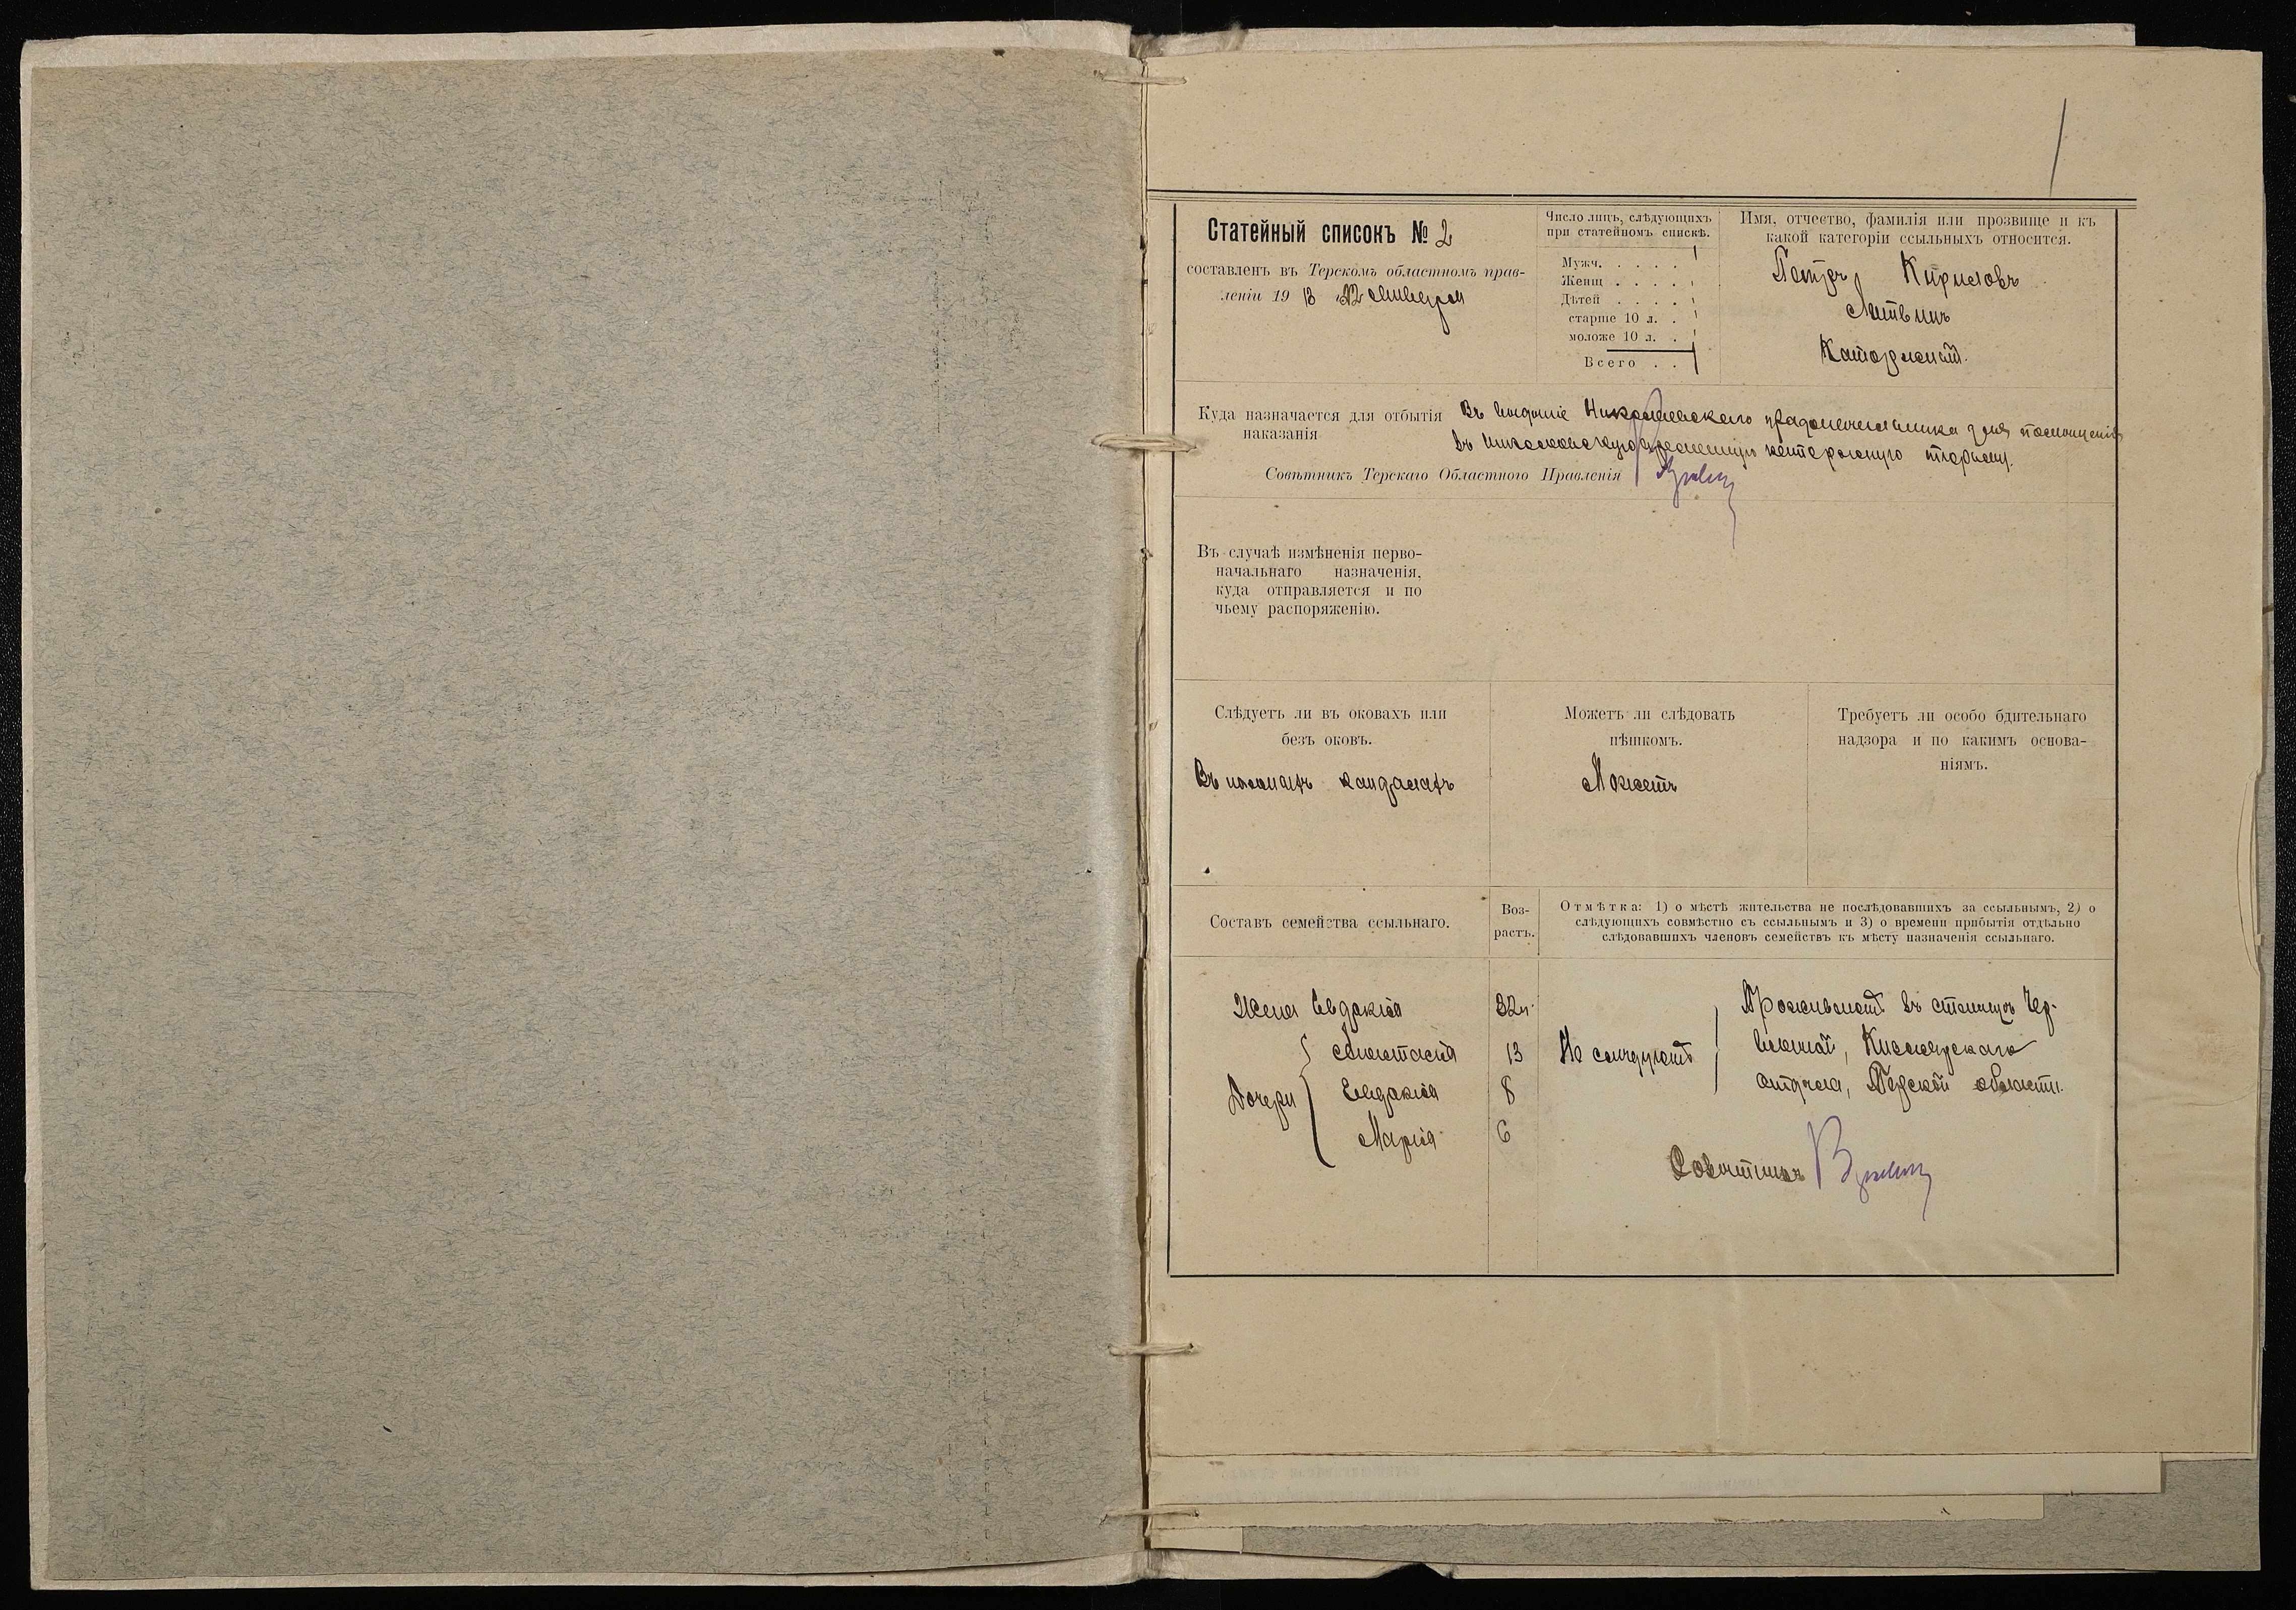 1
Статейный списокъ № 2
составленъ въ Терскомъ областномъ прав-
леніи 1913 22 января
Число лицъ, слѣдующихъ
при статейномъ спискѣ.
Мужч. . . . . 1
Женщ . . . . .
Дѣтей . . . .
старше 10 л. .
моложе 10 л. .
Всего . . 1
Имя, отчество, фамилія или прозвище и къ
какой категоріи ссыльныхъ относится.
Петръ Кириловъ
Литвинъ
Каторжный.
Куда назначается для отбытія
наказанія
Въ вѣдѣніе Николаевскаго градоначальника для помѣщенія
въ Николаевскую временную каторжную тюрьму.
Совѣтникъ Терскаго Областного Правленія
Въ случаѣ измѣненія перво-
начальнаго назначенія,
куда отправляется и по
чьему распоряженію.
Слѣдуетъ ли въ оковахъ или
безъ оковъ.
Въ ножныхъ кандалахъ
Можетъ ли слѣдовать
пѣшкомъ.
Можетъ
Требуетъ ли особо бдительнаго
надзора и по какимъ основа-
ніямъ.
Составъ семейства ссыльнаго.
Воз-
растъ.
Отмѣтка: 1) о мѣстѣ жительства не послѣдовавшихъ за ссыльнымъ, 2) о
слѣдующихъ совмѣстно съ ссыльнымъ и 3) о времени прибытія отдѣльно
слѣдовавшихъ членовъ семействъ къ мѣсту назначенія ссыльнаго.
Жена Евдокія 32 л.
Дочери
Анастасія 13
Евдокія 8
Марія 6
Не слѣдуютъ
Проживаютъ въ станицѣ Чер-
вленной, Кизлярскаго
отдѣла, Терской области.
Совѣтникъ